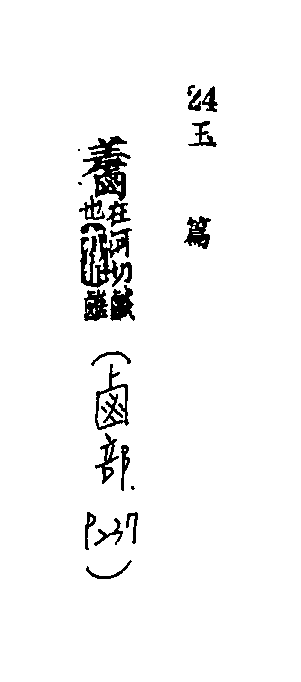 24 玉篇
在河切鹹
也
(鹵部. P237)